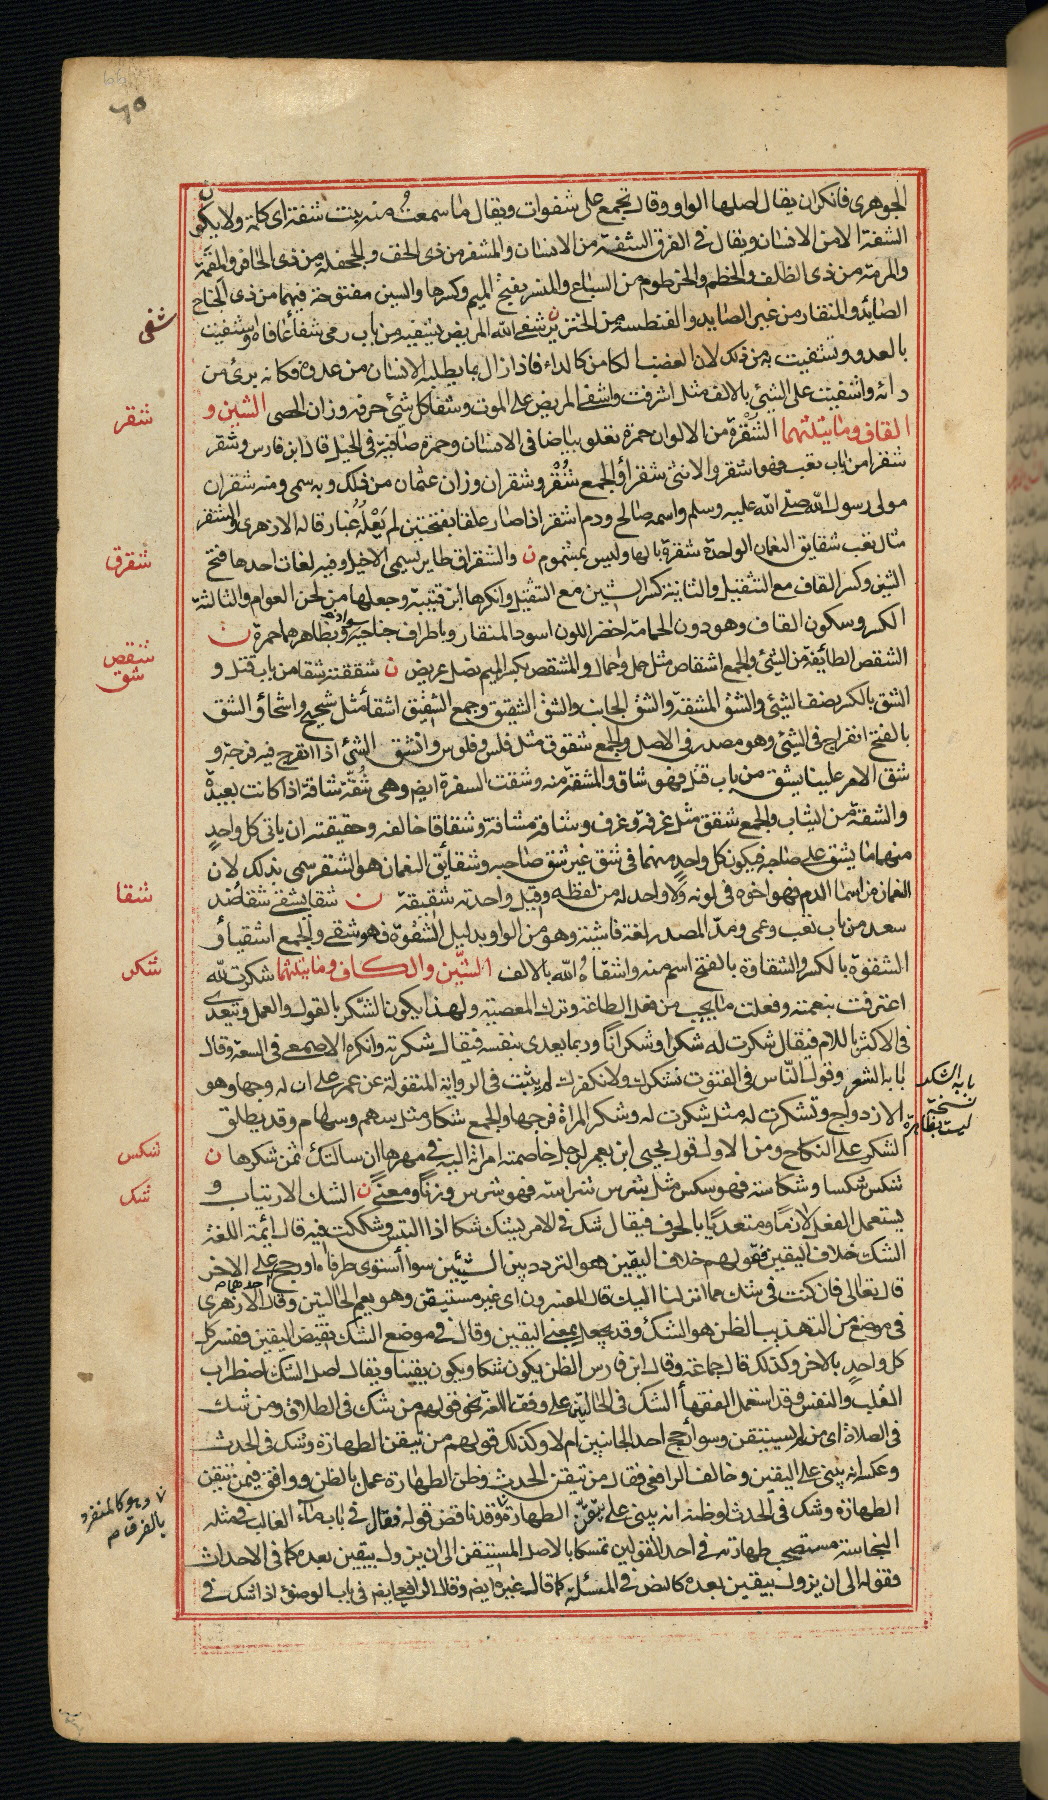 ٦٥
الجوهرى فانكر ان يقال اصلها الواو وقال تجمع على شفوات ويقال ما سمعت منه بنت شفة اى كلمة ولا يكون
الشفة الا من الانسان ويقال فى الفرق الشفة من الانسان والمشفر من ذى الخف والجحفلة من ذى الحافر والمقمة
والمرمة من ذى الظلف والخطم والخرطوم من السباع والمنسر بفتح الميم وكسرها والسين مفتوحة فيهما من ذى الجناح
الصائد والمنقار من غير الصايد والفنطيسة من الخنزير ن شفى الله المريض يشفيه من باب رمى شفأ عافاه واشتفيت
بالعدو وتشفيت به من ذلك لان الغضب الكامن كالداء فاذا زال بما يطلبه الانسان من عدوه فكانه برئ من
دائه واشفيت على الشئ بالالف مثل اشرفت واشفى المريض على الموت وشفا كل شئ حرفه وزان الحصى الشين و
القاف وما يثلثهما الشُّقْرة من الالوان حمرة تعلو بياضا فى الانسان وحمرة صافية فى الخيل قال ابن فارس وشقر
شقرا من باب تعب فهو اشقر والانثى شقرأ والجمع شُقْر وشقران وزان عثمان من ذلك وبه سمى ومنه شقران
مولى رسول الله صلى الله عليه وسلم واسمه صالح ودم اشقر اذا صار علقا بفتحتين لم يَعْلُه غُبار قاله الازهرى والشقر
مثال تعب شقايق النعمان الواحدة شقرة بالهاء وليس بمشموم ن والشقراق طاير يسمى الاخيل وفيه لغات احدها فتح
الشين وكسر القاف مع التثقيل والثانية كسر الشين مع التثقيل وانكرها ابن قتيبة وجعلها من لحن العوام والثالثة
الكسر وسكون القاف وهو دون الحمامة اخضر اللون اسود المنقار وباطراف جناحيه سواد وبظاهرهما حمرة ن
الشقص الطائفة من الشئ والجمع اشقاص مثل حمل واحمال والمشقص بكسر الميم نصل عريض ن شققته شقا من باب قتل و
الشق بالكسر نصف الشئ والشق المشقة والشق الجانب والشق الشقيق وجمع الشقيق اشقأ مثل شحيح واشحأ والشق
بالفتح انفراج فى الشئ وهو مصدر فى الاصل والجمع شقوق مثل فلس وفلوس وانشق الشئ اذا انفرج فيه فرجة و
شق الامر علينا يشق من باب قتل فهو شاق والمشقة منه وشقت السفرة ايضا وهى شُقّة شاقة اذا كانت بعيدة
والشقة من الثياب والجمع شقق مثل غرفة وغرف وشاقه مشاقة وشقاقا خالفه وحقيقته ان ياتى كل واحد
منهما ما يشق على صاحبه فيكون كل واحد منهما فى شق غير شق صاحبه وشقائق النعمان هو الشقر سمى بذلك لان
النعمان من اسماء الدم فهو اخوه فى لونه ولا واحد له من لفظه وقيل واحدته شقيقة ن شقا يشقى شقا ضد
سعد من باب تعب وعمى ومدّ المصدر لغة فاشية وهو من الواو بدليل الشقوة فهو شقى والجمع اشقيأ و
الشقوة بالكسر والشقاوة بالفتح اسم منه واشقاه الله بالالف الشين والكاف وما يثلثهما شكرت لله
اعترفت بنعمته وفعلت ما يجب من فعل الطاعة وترك المعصية ولهذا يكون الشكر بالقول والعمل ويتعدى
فى الاكثر باللام فيقال شكرت له شكرا وشكرانا وربما يعدى بنفسه فيقال شكرته وانكره الاصمعى فى السعة وقال
بابه الشعر وقول الناس فى القنوت نشكرك ولا نكفرك لم يثبت فى الرواية المنقولة عن عمر على ان له وجها وهو
الازدواج وتشكرت له مثل شكرت له وشكر المرأة فرجها والجمع شكار مثل سهم وسهام وقد يطلق
الشكر على النكاح ومن الاول قول يحيى ابن يعمر لرجل خاصمته امراته اليه فى مهرها ان سالتك ثمن شكرها ن
شكس شكسا وشكاسة فهو شكس مثل شرس شراسة فهو شرس وزنا ومعنى ن الشك الارتياب و
يستعمل الفعل لازما ومتعديا بالحرف فيقال شك فى الامر يشك شكا اذا التبس وشككت فيه قال ائمة اللغة
الشك خلاف اليقين فقولهم خلاف اليقين هو التردد بين الشيئين سوأ استوى طرفاه او رجح على الاخر
قال تعالى فان كنت فى شك مما انزلنا اليك قال المفسرون اى غير مستيقن وهو يعم الحالتين وقال الازهرى
فى موضع من التهذيب الظن هو الشك وقد يجعل بمعنى اليقين وقال فى موضع الشك نقيض اليقين ففسر كل
كل واحد بالاخر وكذلك قال جماعة وقال ابن فارس الظن يكون شكا ويكون يقينا ويقال اصل الشك اضطراب
القلب والنفس وقد استعمل الفقهأ الشك فى الحالتين على وفق اللغة نحو قولهم من شك فى الطلاق ومن شك
فى الصلاة اى من لم يستيقن وسوأ رجح احد الجانبين ام لا وكذلك قولهم من تيقن الطهارة وشك فى الحدث
وعكسه انه يبنى على اليقين وخالف الرافعى فقال من تيقن الحدث وظن الطهارة عمل بالظن ووافق فيمن تيقن
الطهارة وشك فى الحدث او ظنه انه يبنى على تيقن الطهارة وقد ناقض قوله فقال فى باب مآء الغالب فى مثله
النجاسة مستصحب طهارته فى احد القولين تمسكا بالاصل المستيقن الى ان يزول بيقين بعده كما فى الاحداث
فقوله الى ان يزول بيقين بعده كالنص فى المسئلة كما قال غيره ايضا وقال الرافعى ايضا فى باب الوضوء اذا شك فى
شفى
شقر
شقرق
شقص
شق
شقا
شكر
شكس
شك
احدهما صح
بابه الشكر
نسخة
ليست بظاهرة
وهو كالمنفرد
بالفرق صح